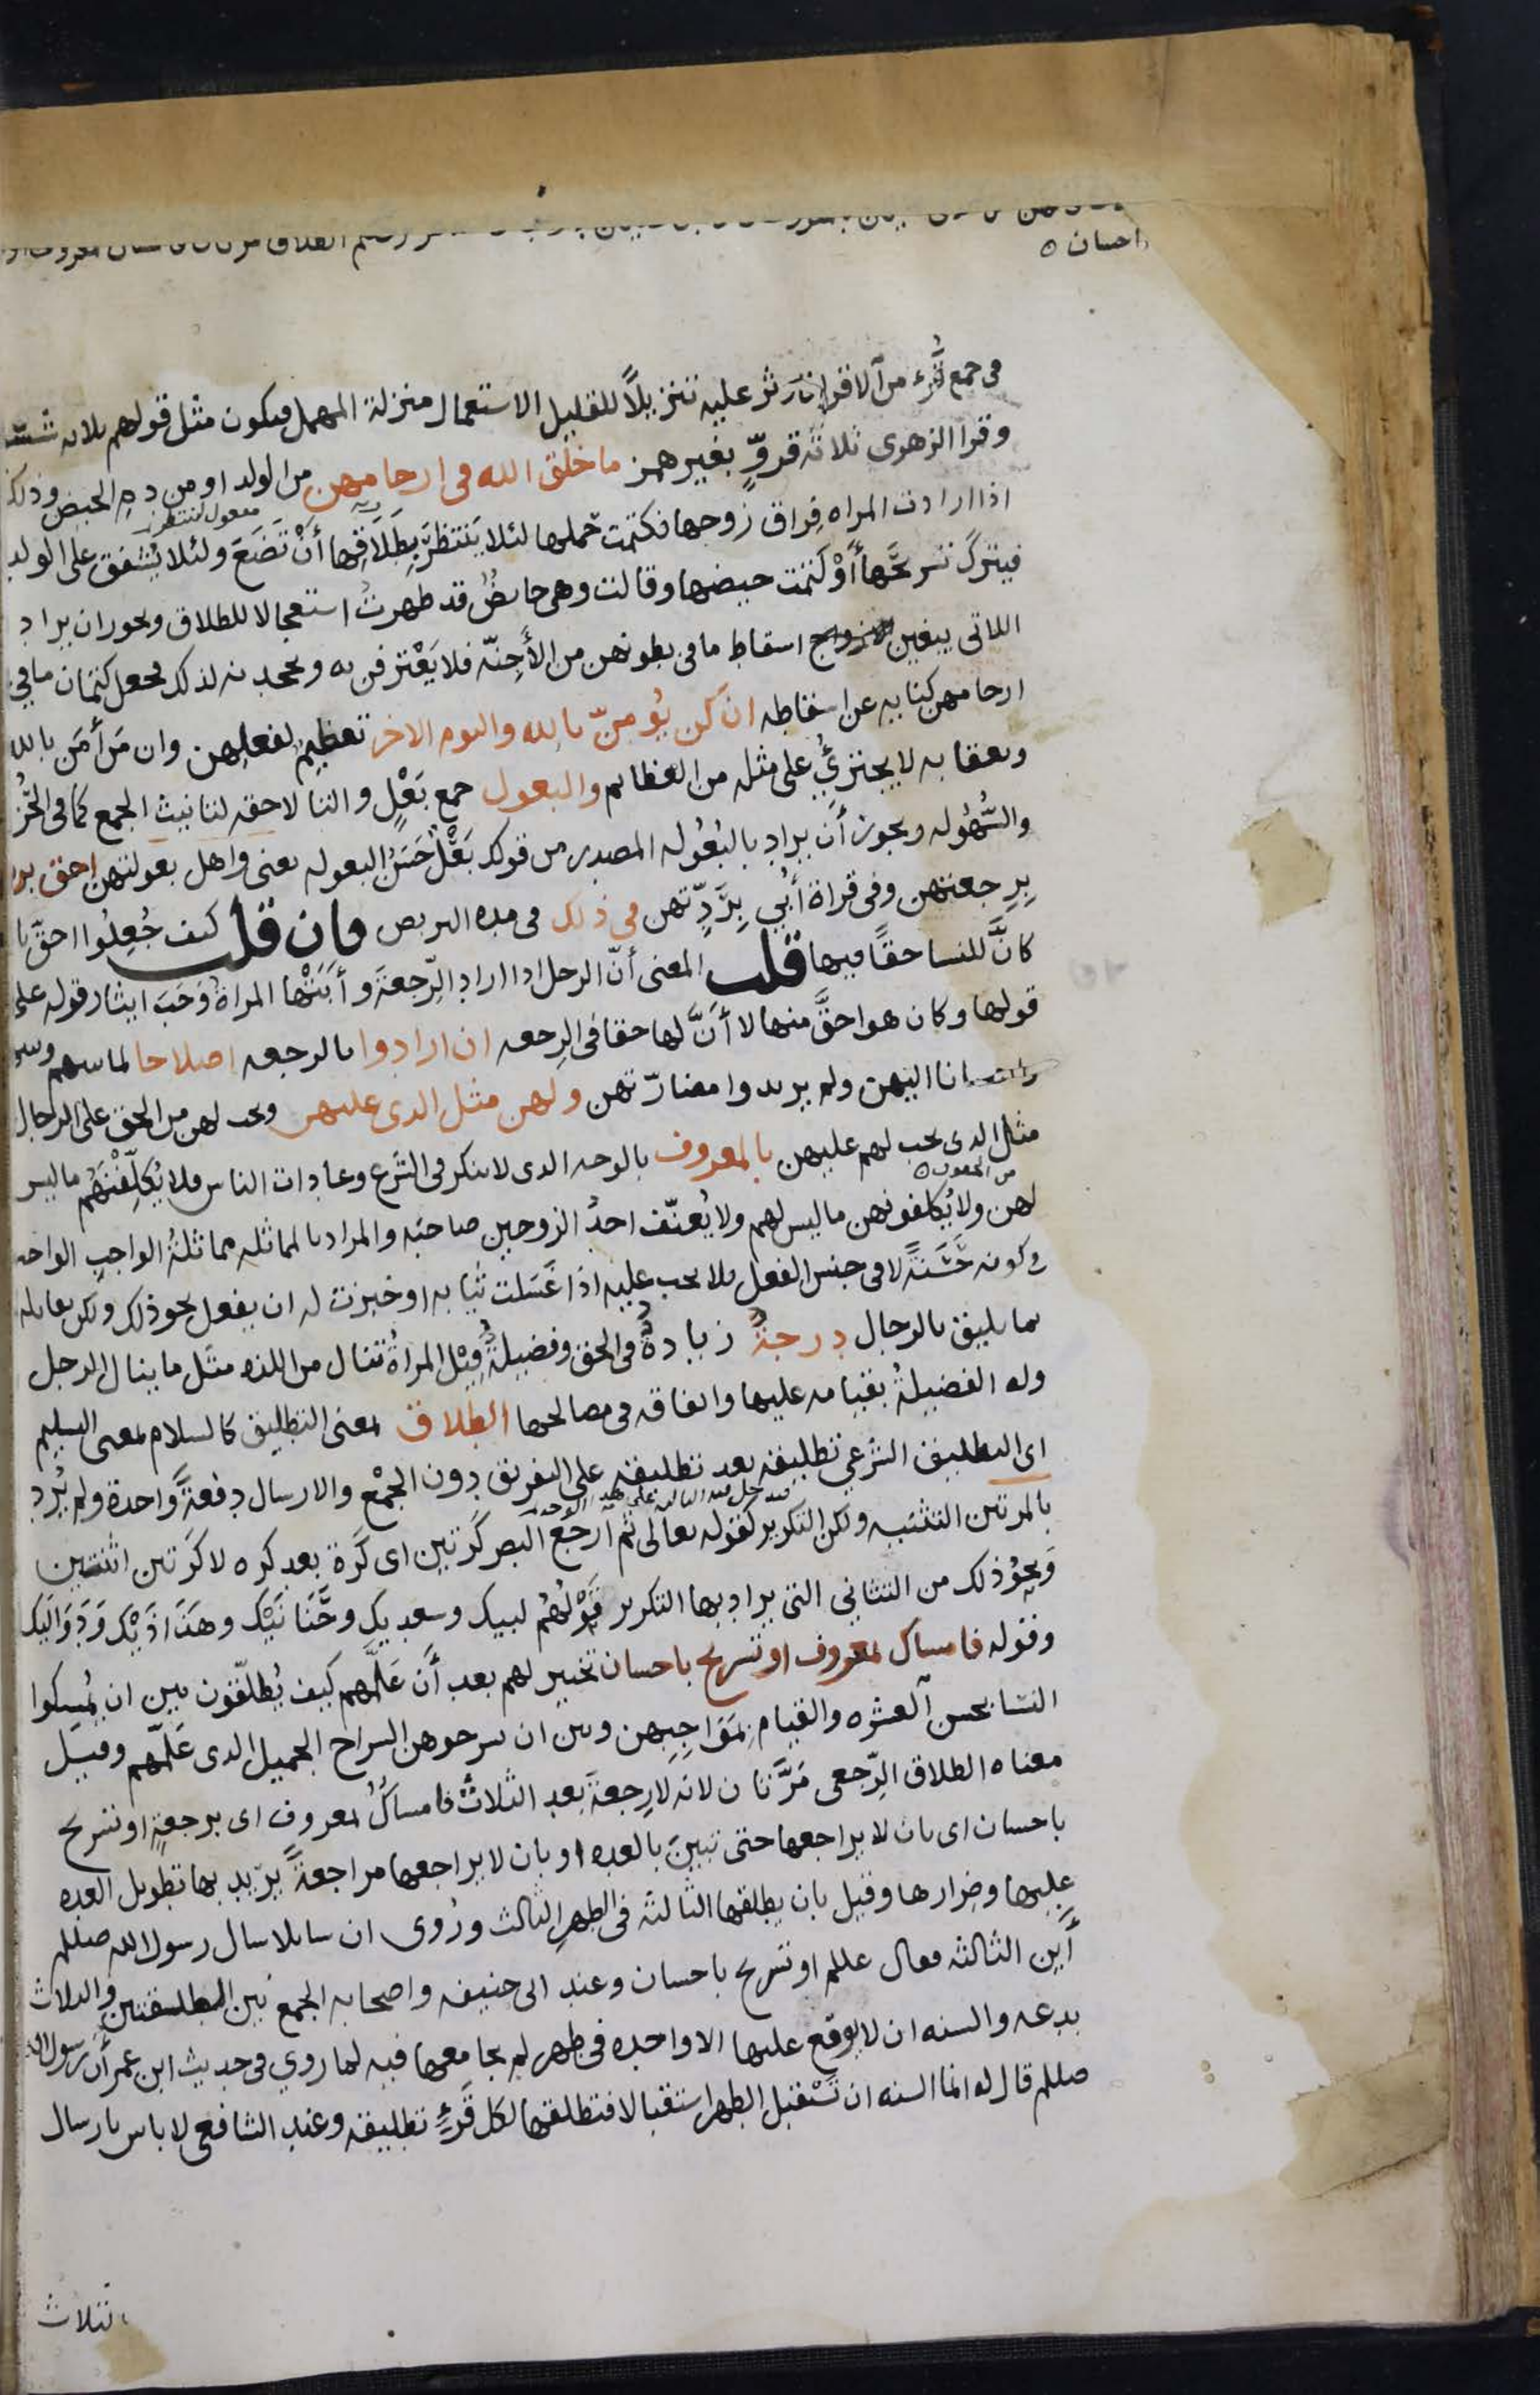 احسان ه
فى جمع قُرء من الاقرا فاوثر عليه تنزيلًا للقليل الاستعمال منزلة المهمل فيكون مثل قولهم ثلاثه شسوع
وقرا الزهرى ثلاثة قروٍّ بغير همز ما خلق الله فى ارحامهن من الولد او من دم الحيض وذلك
اذا ارادت المراه فِراق زوجها فكتمت حملها لئلا يَنتظرَ بِطَلَاقِها أنْ تَضَعَ ولئلا يُشفق على الولد
مفعول لينتظر
فيترك تسريحَها أَوْ كَتمت حيضها وقالت وهى حايضٌ قد طهرتُ استعجالا للطلاق ويجوز ان يراد
اللاتى يبغين اسقاط ما فى بطونهن من الأَجِنّه فلا يَعْترفن به ويجحدنه لذلك فجعل كتمان ما فى
ارحامهن كنايه عن اسقاطه ان كن يُومنّ بالله واليوم الاخر تعظيم لفعلهن وان مَن أمَن بالله
وبعقابه لا يجترئُ على مثله من العظايم والبعول جمع بَعْلٍ والتا لاحقه لتانيث الجمع كما فى الحُز
والسُّهُوله ويجوز أن يراد بالبُعُوله المصدر من قولك بَعْلٌ حَسَنُ البعوله يعنى واهل بعولتهن احق برد
بِرجعتهن وفى قراة أُبي بِرَدِّتهن فى ذلك فى مده التربص فان قلت كيف جُعِلُوا احقّ با
كانَّ للنسا حقًا فيها قلت المعنى أنّ الرجل اذا اراد الرّجعةَ وأَبَتْها المراةُ وَجَبَ ايثار قوله على
قولها وكان هو احقَّ منها لا أَنَّ لها حقا فى الرجعه ان ارادوا بالرجعه اصلاحا لما بينهم وبين
واحسانا اليهن ولم يريدوا مضارّتهن ولهن مثل الذى عليهن ويجب لهن من الحق على الرجال
مثل الذى يجب لهم عليهن بالمعروف بالوجه الذى لا ينكر فى الشرع وعادات الناس فلا يُكلِّفْنَهُم ما ليس
من الحقوق ه
لهن ولا يُكلفونهن ما ليس لهم ولا يُعنّف احدُ الزوجين صاحبَه والمراد بالمماثله مماثلةُ الواجبِ الواجب
فى كونه حَسَنَةً لا فى جنس الفعل فلا يجب عليه اذا غَسَلت ثيابه او خبزت له ان يفعل نحو ذلك ولكن يقابله
بما يليق بالرجال درجةٌ زيادةٌ فى الحق وفضيلةٌ قِيْل المراةُ تنال من اللذه مثل ما ينال الرجل
وله الفضيلةُ بقيامه عليها وانفاقه فى مصالحها الطلاق بمعنى التطليق كالسلام بمعنى التسليم
اى التطليق الشرعي تطليقه بعد تطليقه على التفريق دون الجَمْعِ والارسال دفعةً واحدة ولم يُرِد
بالمرتين التثنيه ولكن التكرير كقوله تعالى ثم ارجع البصر كرتين اى كَرّة بعد كره لا كرتين اثنتين
وَنحوُ ذلك من التثانى التى يراد بها التكرير قَوْلُهُم لبيك وسعديك وحَنَانَيْك وهَذَاذَيْك وَدَوَالَيك
وقوله فامساك بمعروف او تسريح باحسان تخيير لهم بعد أَن عَلَّمهم كيف يُطلّقون بين ان يُمسكوا
النسا بحسن العشره والقيام بِمَوَاجِبِهن وبين ان يسرحوهن السراح الجميل الذى عَلّمهم وقيل
معناه الطلاق الرّجعى مَرَّتان لانه لا رجعةَ بعد الثلاث فامساكٌ بمعروف اى برجعةٍ او تسريح
باحسان اى بان لا يراجعها حتى تبينَ بالعده او بان لا يراجعها مراجعةً يريد بها تطويل العده
عليها وضرارها وقيل بان يطلقها الثالثه فى الطهر الثالث ورُوى ان سايلا سال رسول الله صللم
أَين الثالثه فقال عللم او تسريح باحسان وعند ابى حنيفه واصحابه الجمع بين التطليقتين والثلاث
بدعه والسنه ان لا يوقع عليها الا واحده فى طهر لم يجامعها فيه لما روي فى حديث ابن عمر أن رسول الله
صللم قال له انما السنه ان تَسْتقبل الطهر استقبالا فتطلقها لكل قُرءٍ تطليقه وعند الشافعى لا باس بارسال
ثلاث